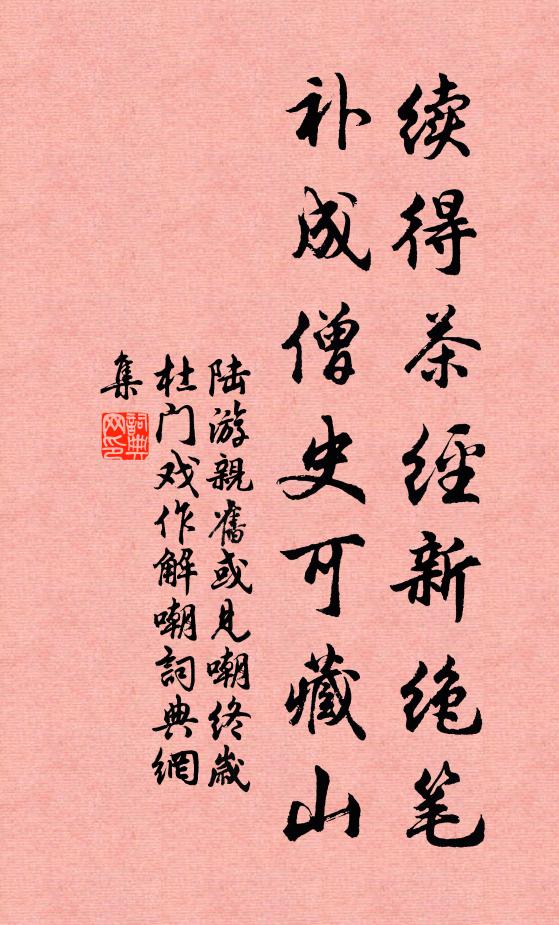 续得茶经新绝笔
补成僧史可藏山
陆游親舊或见嘲终歲
杜门戏作解嘲詞典網
集
詞典
网印